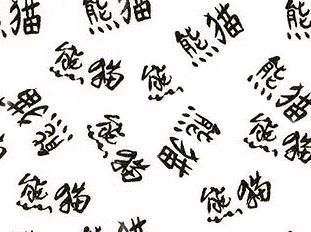 熊猫
熊猫
熊猫
熊猫
熊猫
熊
熊猫
熊猫
熊猫
熊猫
熊猫
熊猫
熊猫